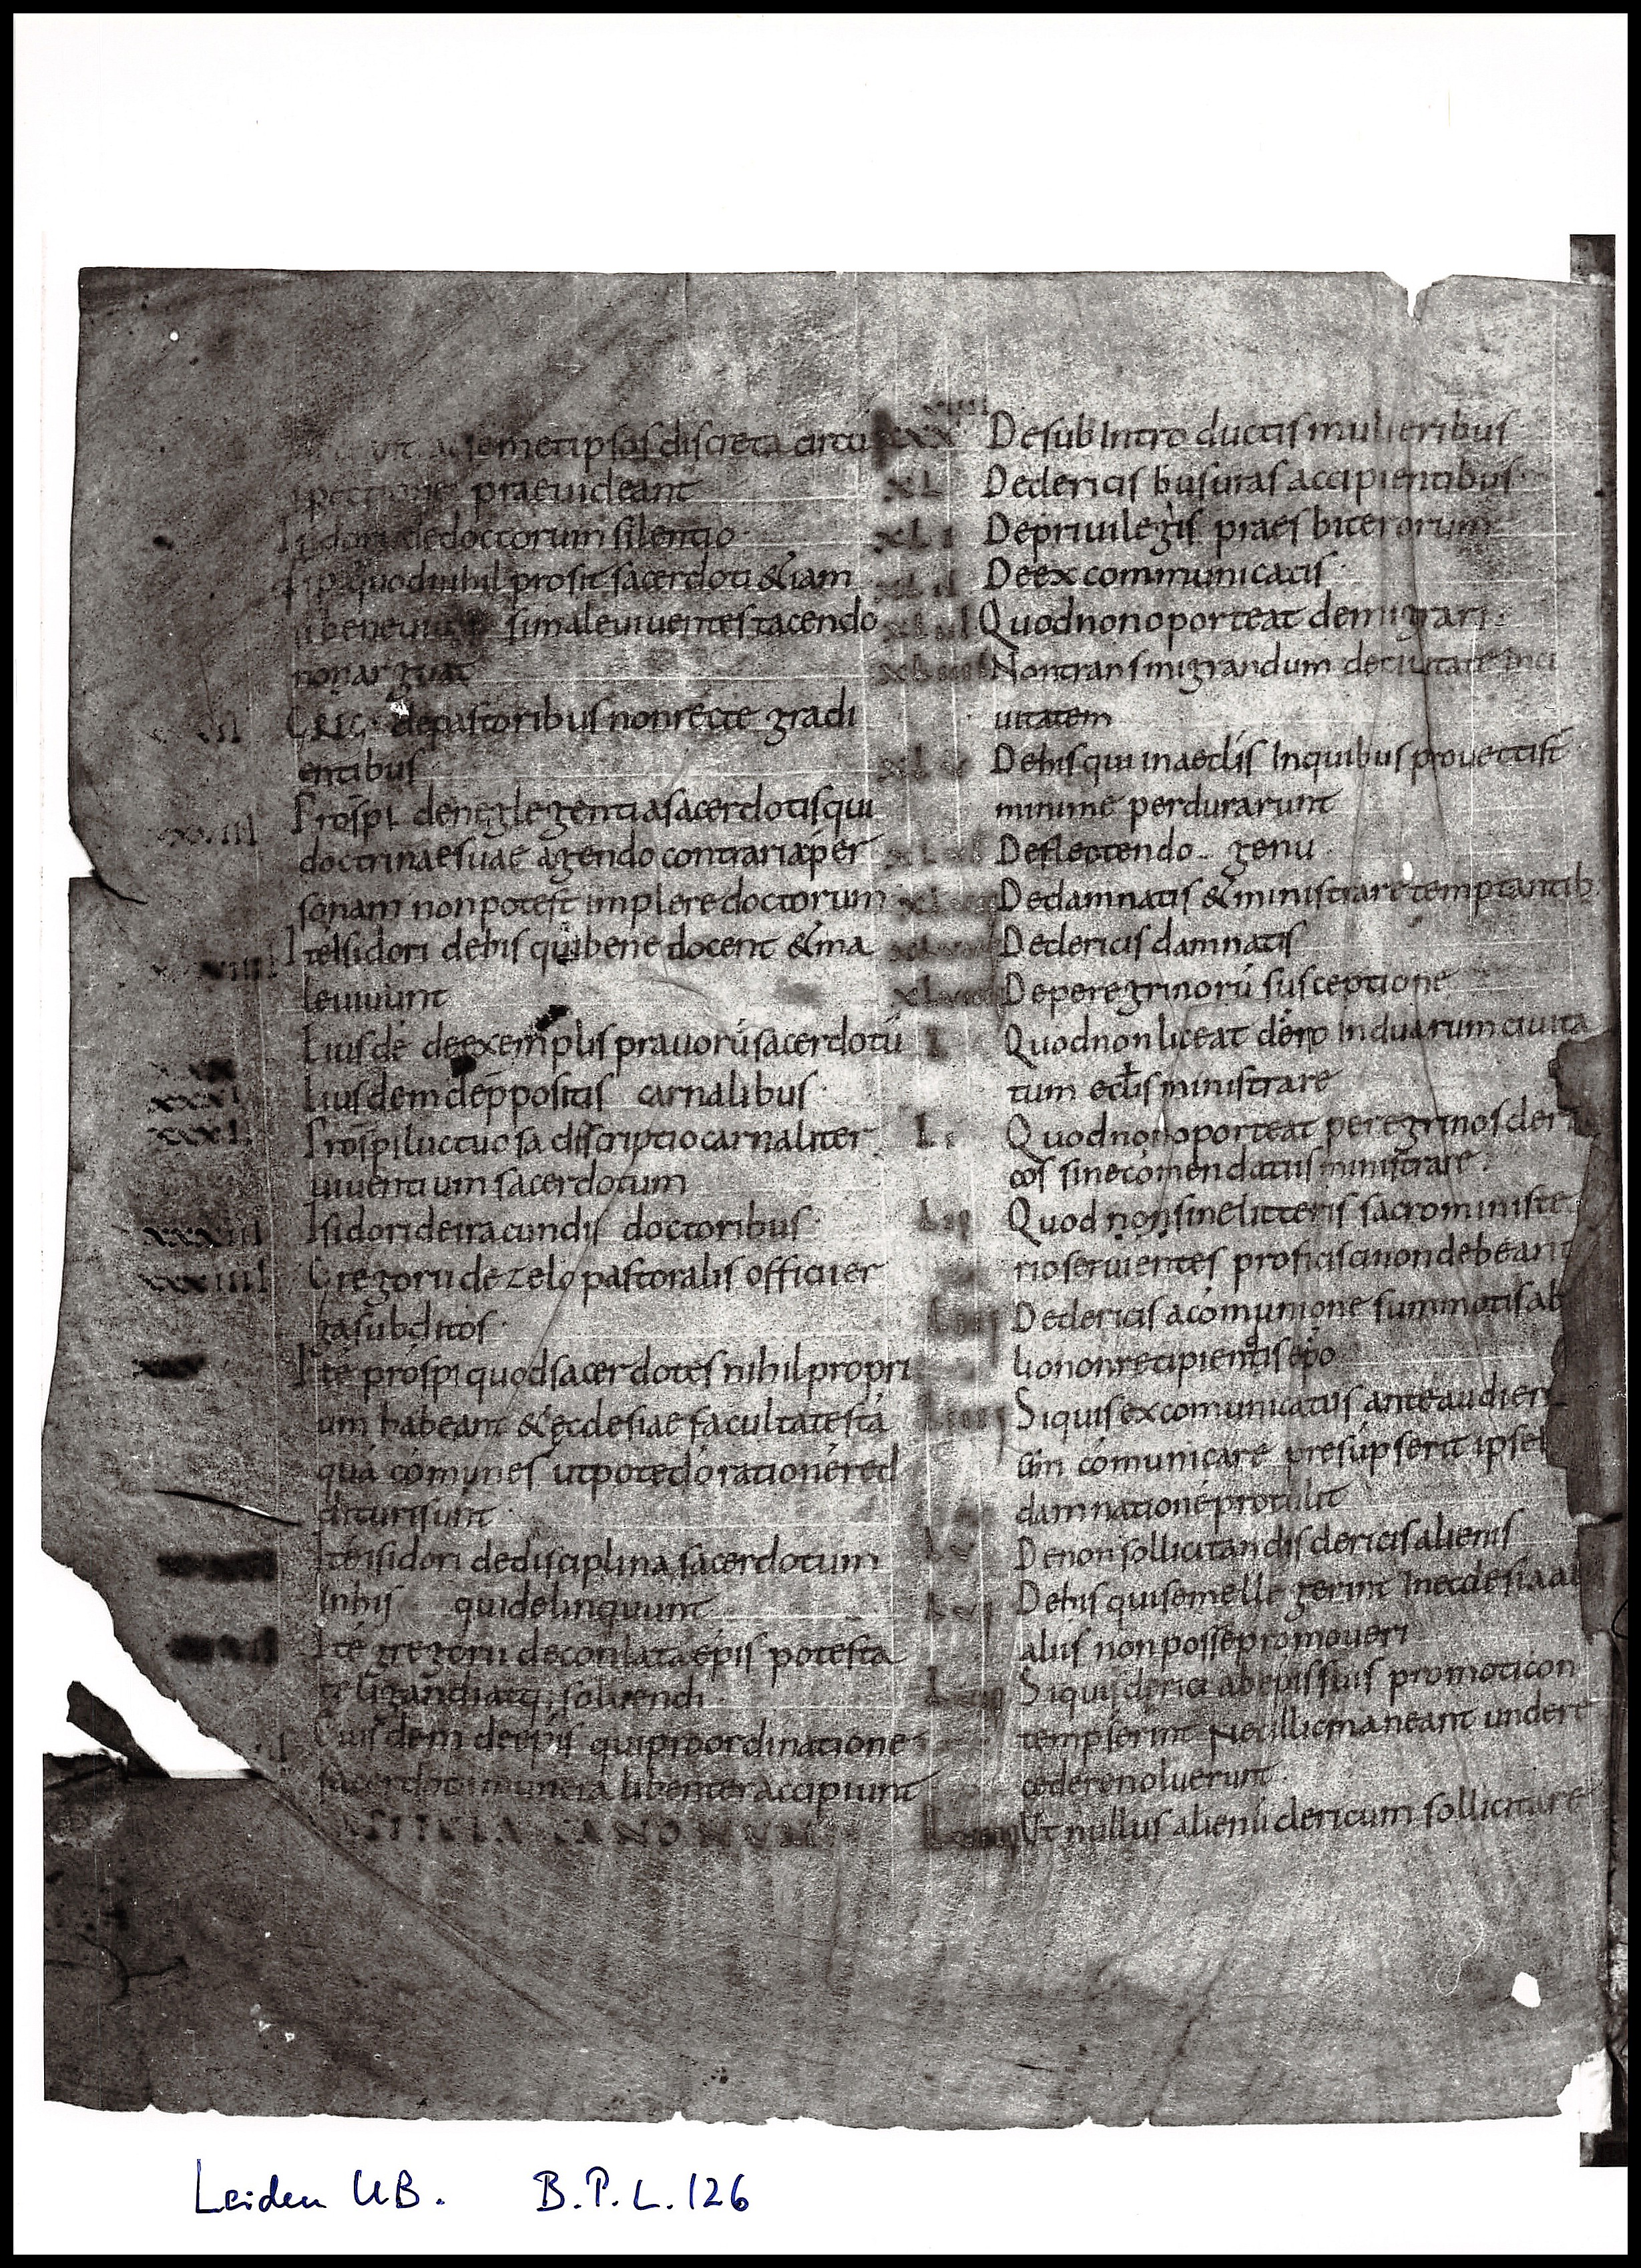 ut a semetipsos discreta circu
spectione praeuideant
Isidori dedoctorum silentio
quodnihil prosit sacerdoti &iam
sibeneuiuat simaleuiuentes tacendo
nonarguat
GREG depastoribus nonrecte gradi
entibus
Prospi deneglegentiasacerdotisqui
doctrinaesuae agendo contrariaper
sonam nonpotest implere doctorum
Itelsidori dehis quibene docent &ma
leuiuunt
Eiusdē deexemplis prauorūsacerdotū
xxxi Eiusdem deppositis carnalibus
Prospiluctuosa discriptiocarnaliter
uiuentium sacerdotum
xxxiii Isidorideiracundis doctoribus
xxxiiii Gregorii de zelo pastoralis officiier
gasubditos
Itē prospi quodsacerdotes nihilpropri
um habeant &ecclesiae facultatestā
quā cōmunes utpotedōrationēred
diturisunt
Iteisidori dedisciplina sacerdotum
Inhis quidelinquunt
Itē gregorii deconlataepis potesta
te ligandiatq; soluendi
Eiusdem deepis quiproordinatione
sacerdotii munera libenter accipiunt
TITULA CANONUM
xxxviiii Desub Intro ductis mulieribus
XL Declericis busuras accipientibus
XLI Depriuilegiis praesbiterorum
XLII Deexcommunicatis
XLIII Quodnonoporteat demigrari
XLIIII Nontransmigrandum deciuitate inci
uitatem
XLV Dehisqui inaeclis Inquibus prouectist
minime perdurarunt
XLVI Deflectendo genu
XLVII Dedamnatis &ministrare temptantib
XLVIII Declericis damnatis
XLVIIII Deperegrinorū susceptione
L Quodnonliceat clero Induarumciuita
tum eclis ministrare
LI Quodnonoporteat peregrinos cleri
cos sinecomendatiis ministrare
LII Quod nonsinelitteris sacroministe
rioseruientes proficiscinondebeant
LIII Declericis acomunione summotisab
liononrecipientis epo
LIIII Siquisexcomunicatus anteaudien
tiam cōmunicare presūpserit ipse
damnationē protulit
LV Denonsollicitandis clericis alienis
LVI Dehis quisemellegerint Inecclesiaal
aliis nonposse promoueri
LVII Siquisclerici abepissuis promoticon
tempserint necillicmaneant undere
cederenoluerunt
LVIII Ut nullus alienū clericum sollicitare
Leiden UB. B.P.L. 126